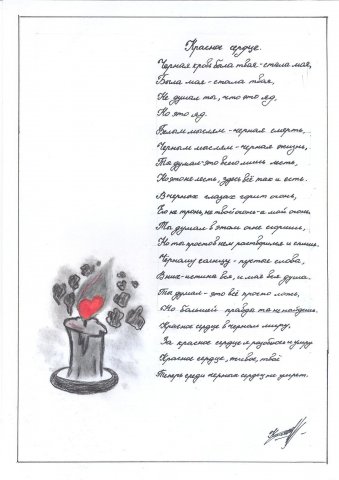 Красное сердце.
Чёрная кровь была твоя - стала моя,
Была моя - стала твоя,
Не думал ты, что это яд,
Но это яд.
Белым мыслям - чёрная смерть,
Чёрным мыслям - чёрная жизнь,
Ты думал - это всего лишь лесть,
Но это не лесть, здесь всё так и есть.
В чёрных глазах горит огонь,
Его не тронь, не твой огонь - а мой огонь,
Ты думал в этом огне сгоришь,
Но ты просто в нем растворился и спишь.
Чёрному солнцу - пустые слова,
В них - истина вся, и моя вся душа.
Ты думал - это всё просто ложь,
Но большей правды ты не найдешь.
Красное сердце в черном миру,
За красное сердце я разобью и умру
Красное сердце, живое, твоё
Теперь среди черных сердец не умрёт.